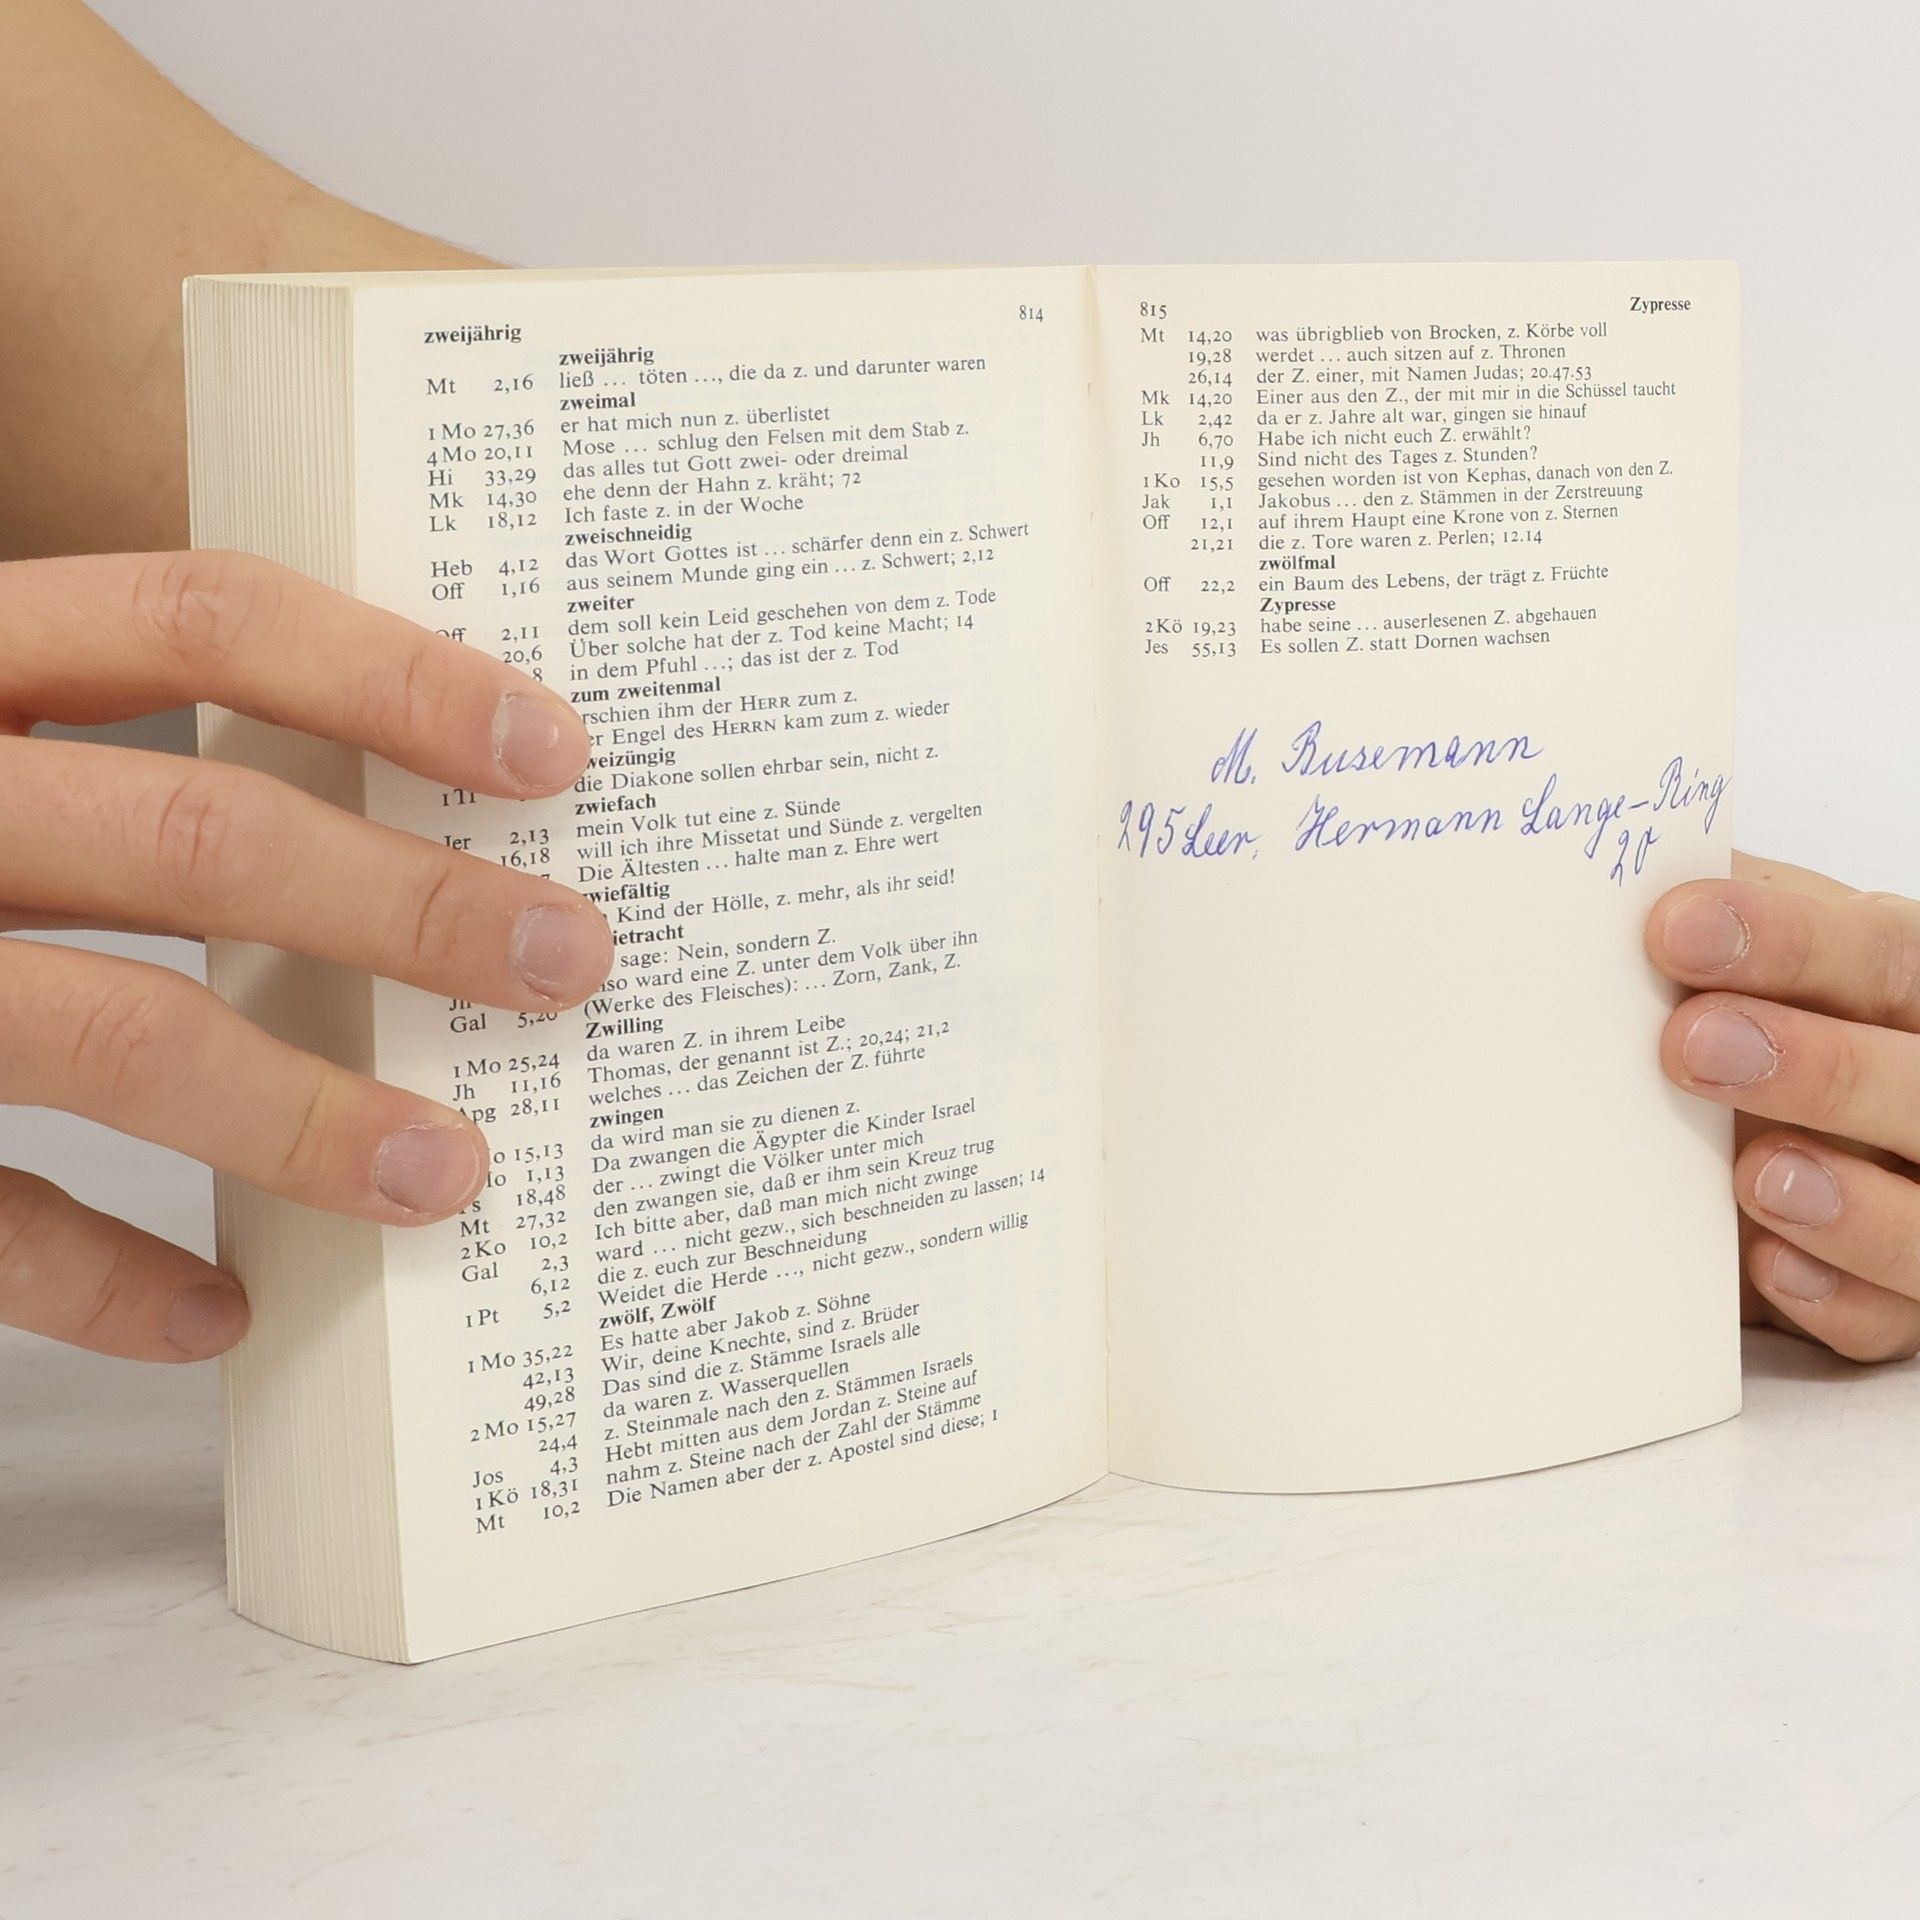 zweijährig 814
zweijährig
Mt 2,16 ließ … töten …, die da z. und darunter waren
zweimal
1 Mo 27,36 er hat mich nun z. überlistet
4 Mo 20,11 Mose … schlug den Felsen mit dem Stab z.
Hi 33,29 das alles tut Gott zwei- oder dreimal
Mk 14,30 ehe denn der Hahn z. kräht; 72
Lk 18,12 Ich faste z. in der Woche
zweischneidig
Heb 4,12 das Wort Gottes ist … schärfer denn ein z. Schwert
Off 1,16 aus seinem Munde ging ein … z. Schwert; 2,12
zweiter
Off 2,11 dem soll kein Leid geschehen von dem z. Tode
20,6 Über solche hat der z. Tod keine Macht; 14
8 in dem Pfuhl …; das ist der z. Tod
zum zweitenmal
rschien ihm der HERR zum z.
er Engel des HERRN kam zum z. wieder
weizüngig
1 Ti die Diakone sollen ehrbar sein, nicht z.
zwiefach
Jer 2,13 mein Volk tut eine z. Sünde
16,18 will ich ihre Missetat und Sünde z. vergelten
Die Ältesten … halte man z. Ehre wert
wiefältig
Kind der Hölle, z. mehr, als ihr seid!
ietracht
sage: Nein, sondern Z.
Jh lso ward eine Z. unter dem Volk über ihn
Gal 5,20 (Werke des Fleisches): … Zorn, Zank, Z.
Zwilling
1 Mo 25,24 da waren Z. in ihrem Leibe
Jh 11,16 Thomas, der genannt ist Z.; 20,24; 21,2
Apg 28,11 welches … das Zeichen der Z. führte
zwingen
o 15,13 da wird man sie zu dienen z.
Mo 1,13 Da zwangen die Ägypter die Kinder Israel
Ps 18,48 der … zwingt die Völker unter mich
Mt 27,32 den zwangen sie, daß er ihm sein Kreuz trug
2 Ko 10,2 Ich bitte aber, daß man mich nicht zwinge
Gal 2,3 ward … nicht gezw., sich beschneiden zu lassen; 14
6,12 die z. euch zur Beschneidung
1 Pt 5,2 Weidet die Herde …, nicht gezw., sondern willig
zwölf, Zwölf
1 Mo 35,22 Es hatte aber Jakob z. Söhne
42,13 Wir, deine Knechte, sind z. Brüder
49,28 Das sind die z. Stämme Israels alle
2 Mo 15,27 da waren z. Wasserquellen
24,4 z. Steinmale nach den z. Stämmen Israels
Jos 4,3 Hebt mitten aus dem Jordan z. Steine auf
1 Kö 18,31 nahm z. Steine nach der Zahl der Stämme
Mt 10,2 Die Namen aber der z. Apostel sind diese; 1
815 Zypresse
Mt 14,20 was übrigblieb von Brocken, z. Körbe voll
19,28 werdet … auch sitzen auf z. Thronen
26,14 der Z. einer, mit Namen Judas; 20.47.53
Mk 14,20 Einer aus den Z., der mit mir in die Schüssel taucht
Lk 2,42 da er z. Jahre alt war, gingen sie hinauf
Jh 6,70 Habe ich nicht euch Z. erwählt?
11,9 Sind nicht des Tages z. Stunden?
1 Ko 15,5 gesehen worden ist von Kephas, danach von den Z.
Jak 1,1 Jakobus … den z. Stämmen in der Zerstreuung
Off 12,1 auf ihrem Haupt eine Krone von z. Sternen
21,21 die z. Tore waren z. Perlen; 12.14
zwölfmal
Off 22,2 ein Baum des Lebens, der trägt z. Früchte
Zypresse
2 Kö 19,23 habe seine … auserlesenen Z. abgehauen
Jes 55,13 Es sollen Z. statt Dornen wachsen
M. Busemann
295 Leer, Hermann Lange-Ring